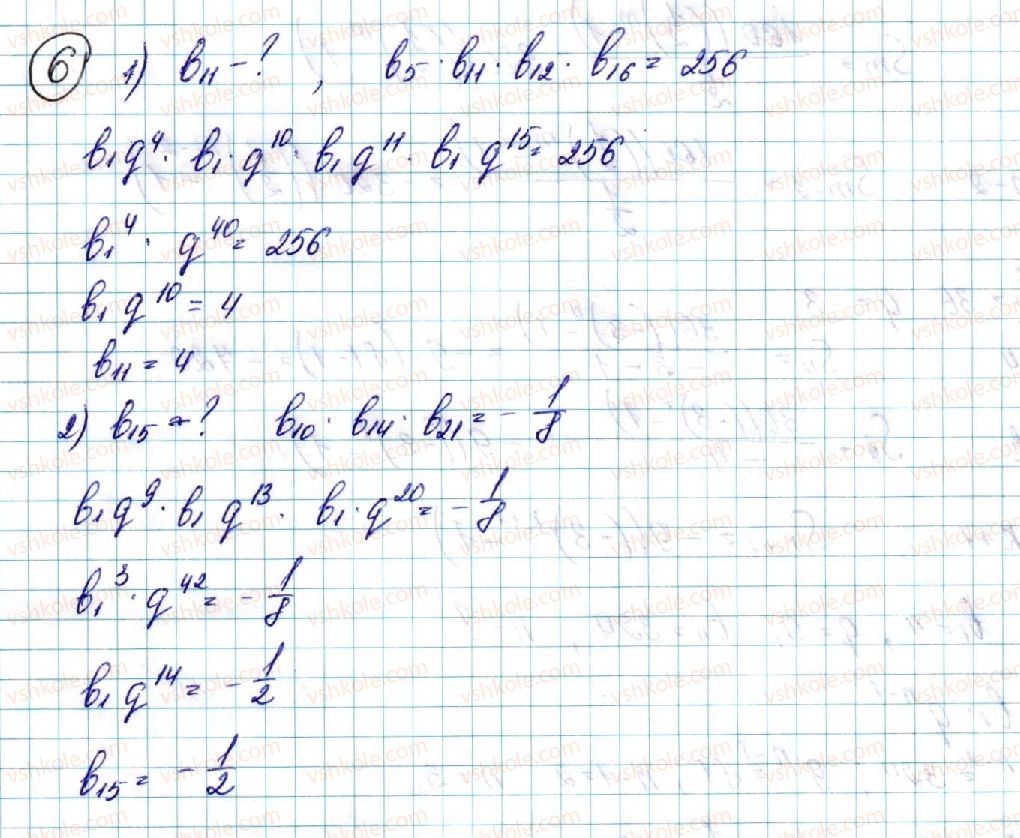 6 1) b₁₁ - ? , b₅ · b₁₁ · b₁₂ · b₁₆ = 256
b₁q⁴ · b₁ · q¹⁰ · b₁q¹¹ · b₁q¹⁵ = 256
b₁⁴ · q⁴⁰ = 256
b₁q¹⁰ = 4
b₁₁ = 4
2) b₁₅ - ? b₁₀ · b₁₄ · b₂₁ = - 1/8
b₁q⁹ · b₁q¹³ · b₁ · q²⁰ = - 1/8
b₁³ · q⁴² = - 1/8
b₁q¹⁴ = - 1/2
b₁₅ = - 1/2